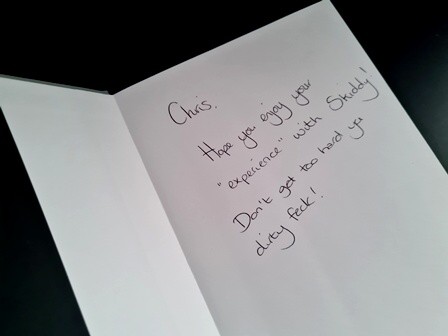 Chris,
Hope you enjoy your
"experience" with Skiddy!
Don't get too hard you
dirty feck!